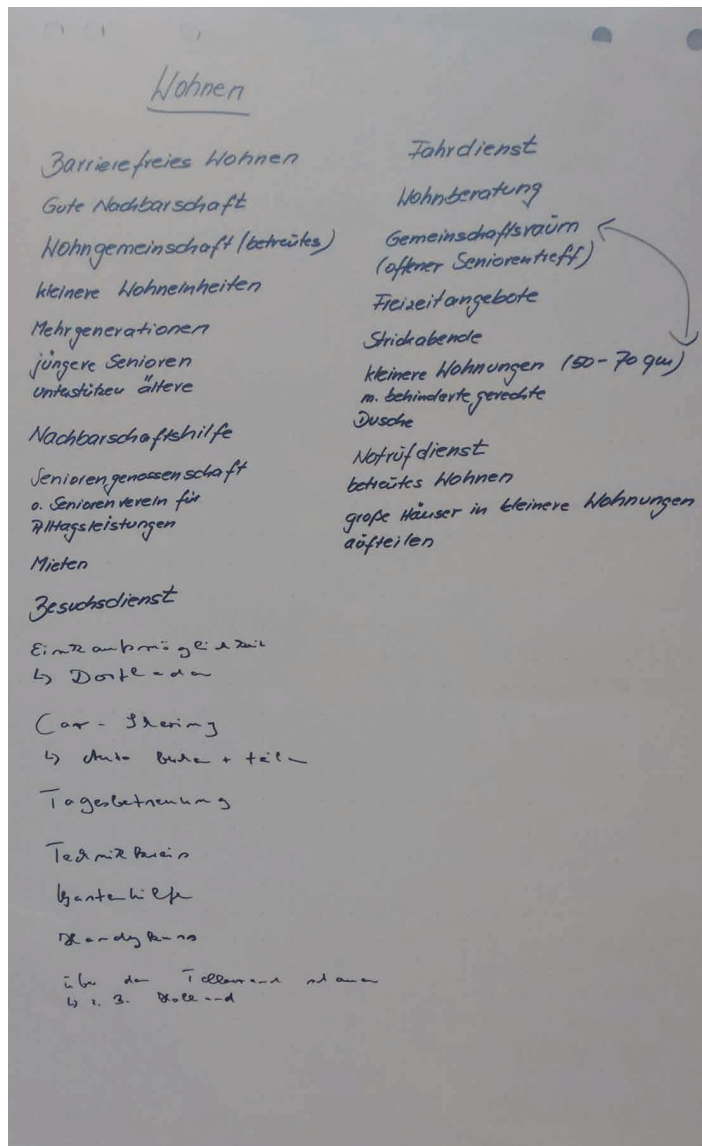 Wohnen
Barrierefreies Wohnen
Gute Nachbarschaft
Wohngemeinschaft (betreutes)
kleinere Wohneinheiten
Mehrgenerationen
jüngere Senioren
unterstützen ältere
Nachbarschaftshilfe
Seniorengenossenschaft
o. Seniorenverein für
Alltagsleistungen
Mieten
Besuchsdienst
Einkaufsmöglichkeit
↳ Dorfladen
Car-Shering
↳ Auto buchen + teilen
Tagesbetreuung
Technikkreis
Gartenhilfe
Handykurs
über den Tellerrand schauen
↳ z. B. Holland
Fahrdienst
Wohnberatung
Gemeinschaftsraum
(offener Seniorentreff)
Freizeitangebote
Strickabende
kleinere Wohnungen (50-70 qm)
m. behinderte gerechte
Dusche
Notrufdienst
betreutes Wohnen
große Häuser in kleinere Wohnungen
aufteilen